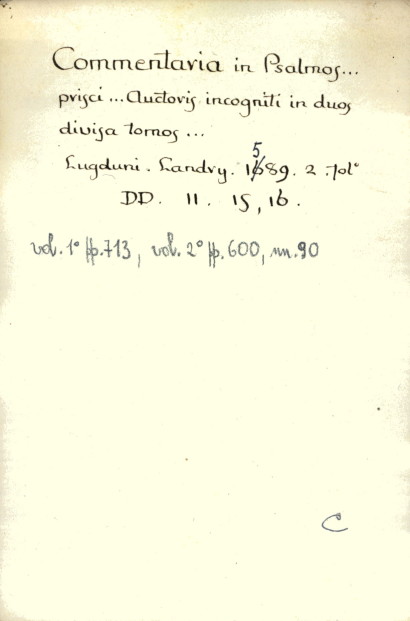 Commentaria in Psalmos...
prisci ... Auctoris incogniti in duos
divisa tomos ...
Lugduni. Landry. 1589. 2 fol°
DD. 11. 15, 16.
vol. 1° pp. 713, vol. 2° pp. 600, nn. 90
C